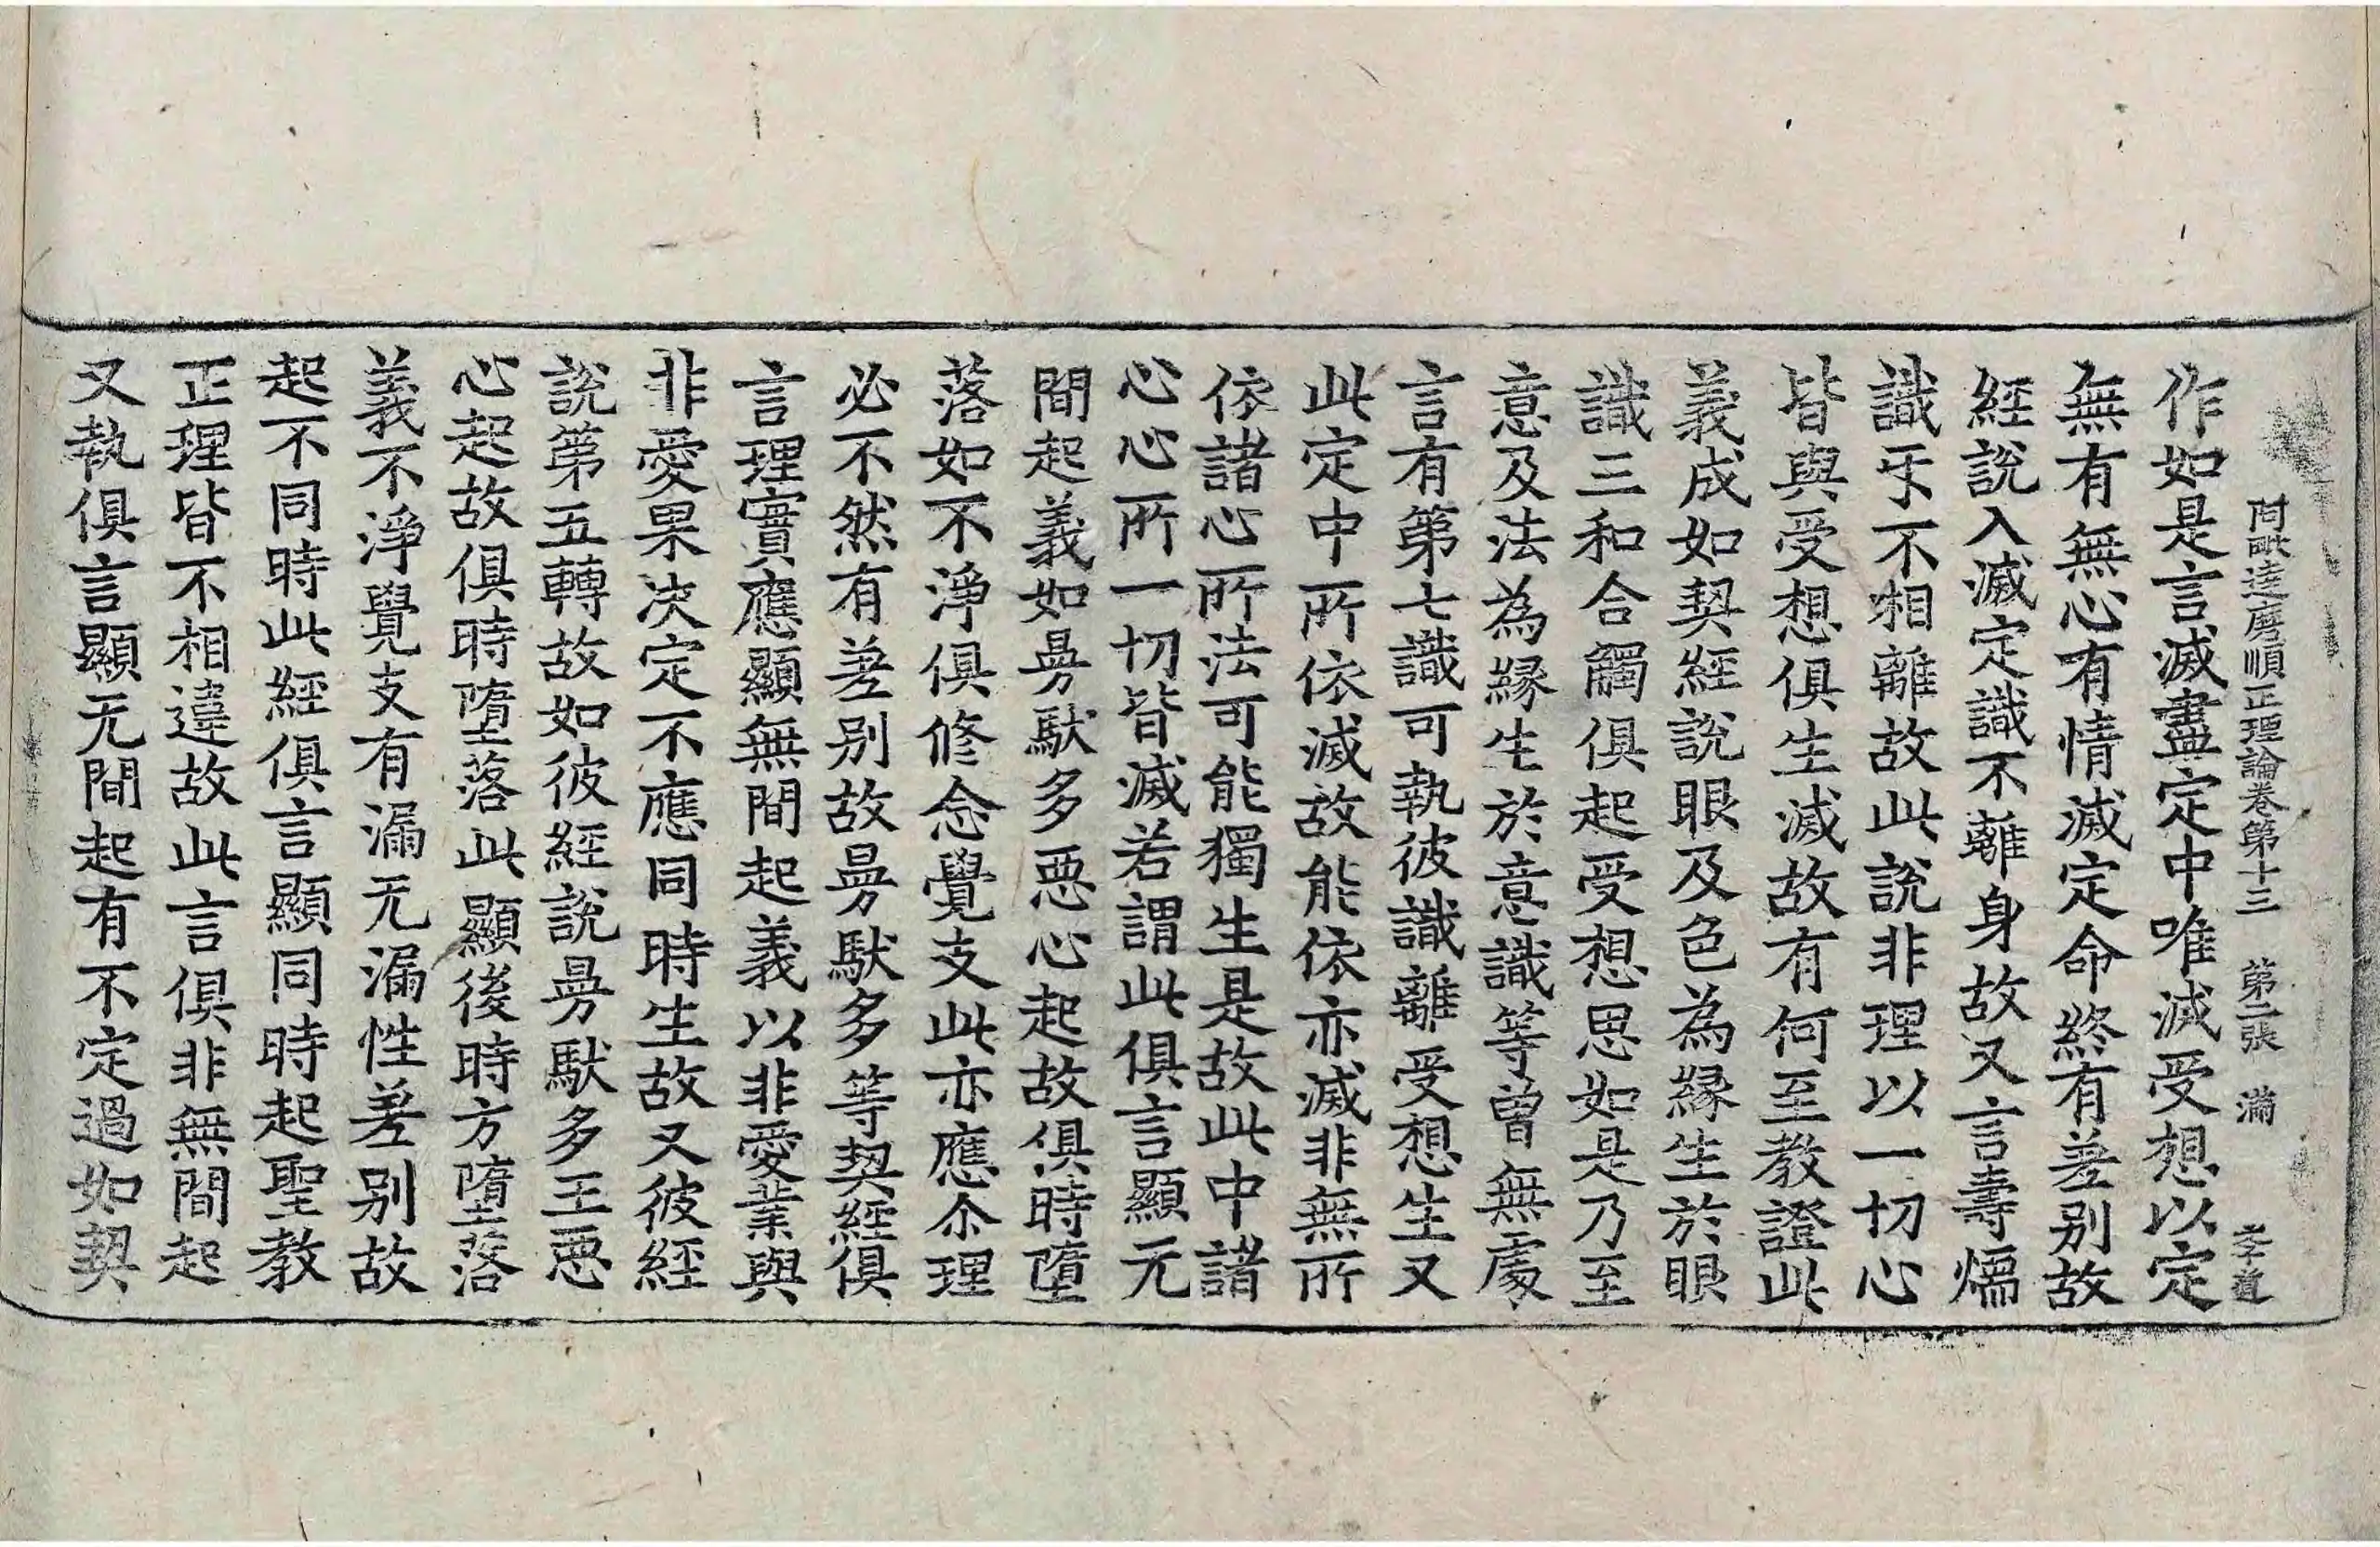 阿毗達磨順正理論卷第十三 第二張 滿
作如是言滅盡定中唯滅受想以定
無有無心有情滅定命終有差别故
經說入滅定識不離身故又言壽煖
識㸦不相離故此說非理以一切心
皆與受想俱生滅故有何至教證此
義成如契經說眼及色為緣生於眼
識三和合觸俱起受想思如是乃至
意及法為緣生於意識等曾無處
言有第七識可執彼識離受想生又
此定中所依滅故能依亦滅非無所
依諸心所法可能獨生是故此中諸
心心所一切皆滅若謂此俱言顯无
間起義如㬅馱多惡心起故俱時墮
落如不淨俱修念覺支此亦應尒理
必不然有差别故㬅馱多等契經俱
言理實應顯無間起義以非愛業與
非愛果决定不應同時生故又彼經
說第五轉故如彼經說㬅馱多王惡
心起故俱時墮落此顯後時方墮落
義不淨覺支有漏无漏性差别故
起不同時此經俱言顯同時起聖教
正理皆不相違故此言俱非無間起
又執俱言顯无間起有不定過如契